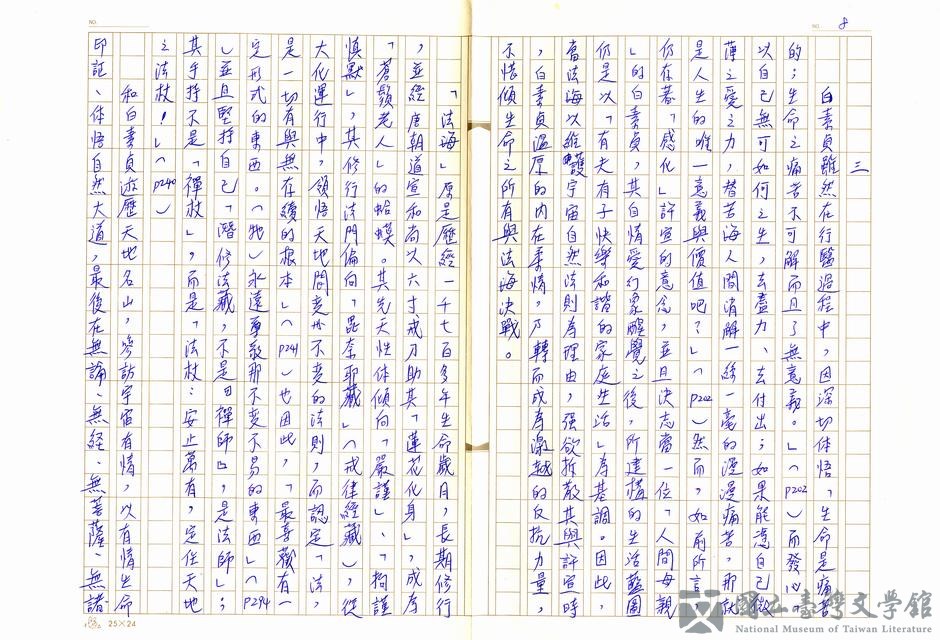 NO.
NO. 8
三
白素貞雖然在行醫過程中，因深切体悟「生命是痛苦
的；生命之痛苦不可解而且了無意義。」（P202）而發心「
以自己無可如何之生，去盡力、去付出；如果能憑自己微
薄之愛之力，替苦海人間消解一絲一毫的漫漫痛苦，那就
是人生的唯一意義與價值吧？」（P202）然而，如前所言，
仍存著「感化」許宣的意念，並且決志當一位「人間母親
」的白素貞，其自情愛幻象醒覺之後，所建構的生活藍圖
仍是以「有夫有子快樂和諧的家庭生活」為基調。因此，
當法海以維護宇宙自然法則為理由，强欲拆散其與許宣時
，白素貞溫厚的內在柔情，乃轉而成為激越的反抗力量，
不惜傾生命之所有與法海決戰。
「法海」原是歷經一千七百多年生命歲月，長期修行
，並經唐朝道宣和尚以六寸戒刀助其「蓮花化身」，成為
「蒼鬚老人」的蛤蟆。其先天性体傾向「嚴謹」、「拘謹
慎默」，其修行法門偏向「毘奈耶藏」（戒律經藏），從
大化運行中，領悟天地間变与不变的法則，而認定「法，
是一切有與無存續的根本」（P241）也因此，「最喜歡有一
定形式的東西。（牠）永遠尊敬那不变不易的東西」（P294
）並且堅持自己「潛修法藏，不是『禪師』，是法師」；
其手持不是「禪杖」，而是「法杖：安止萬有，定住天地
之法杖！」（P240）
和白素貞遊歷天地名山，參訪宇宙有情，以有情生命
印証、体悟自然大道，最後在無論、無経、無菩薩、無諸
25×24
國立臺灣文學館
National Museum of Taiwan Literature